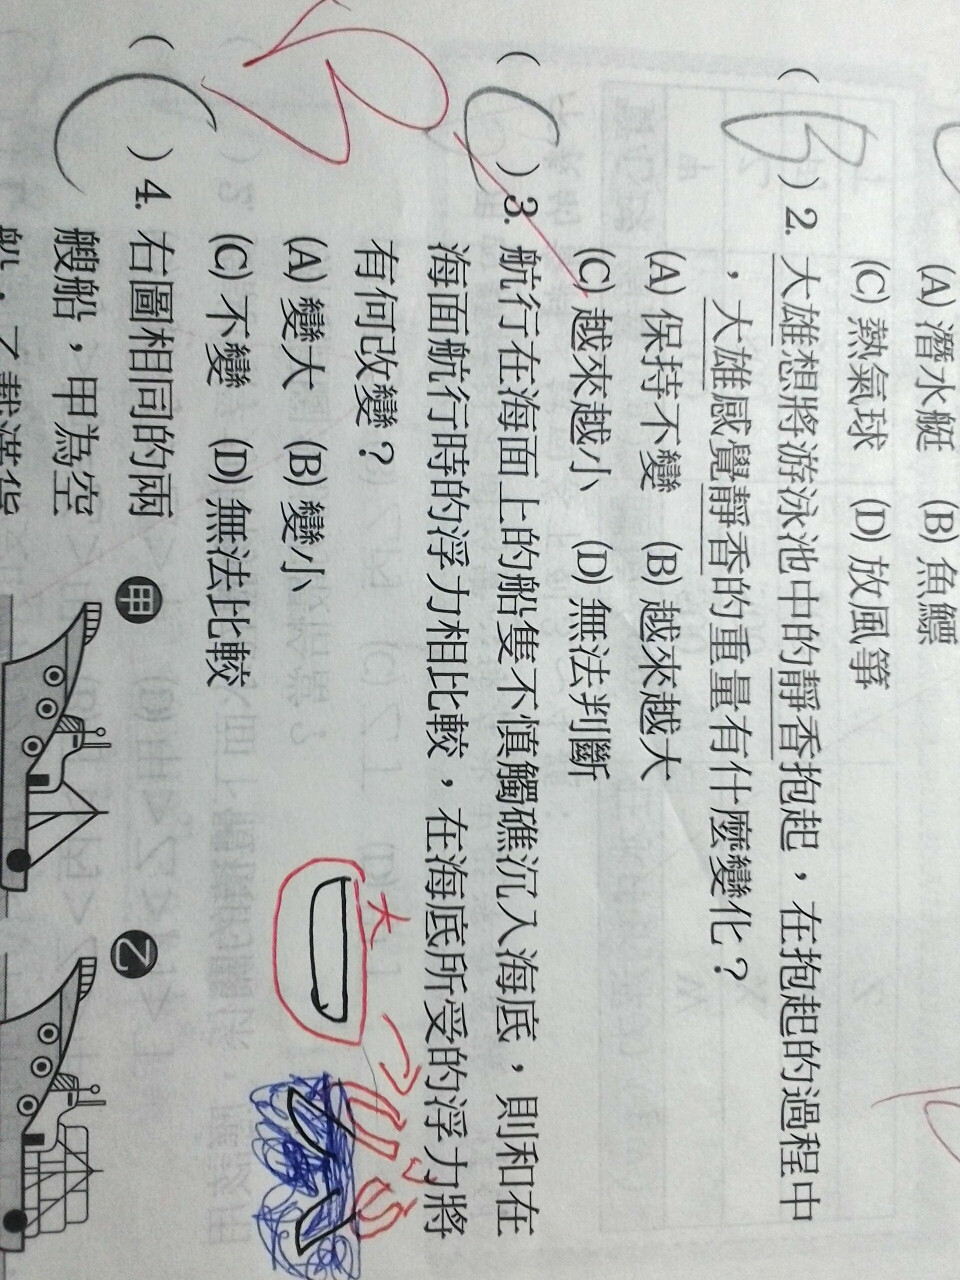 (A) 潛水艇 (B) 魚鰾
(C) 熱氣球 (D) 放風箏
( B ) 2. 大雄想將游泳池中的靜香抱起，在抱起的過程中
，大雄感覺靜香的重量有什麼變化？
(A) 保持不變 (B) 越來越大
(C) 越來越小 (D) 無法判斷
( C ) 3. 航行在海面上的船隻不慎觸礁沉入海底，則和在
海面航行時的浮力相比較，在海底所受的浮力將
有何改變？
B
(A) 變大 (B) 變小
(C) 不變 (D) 無法比較
大
小
( ) 4. 右圖相同的兩
艘船，甲為空
甲
乙